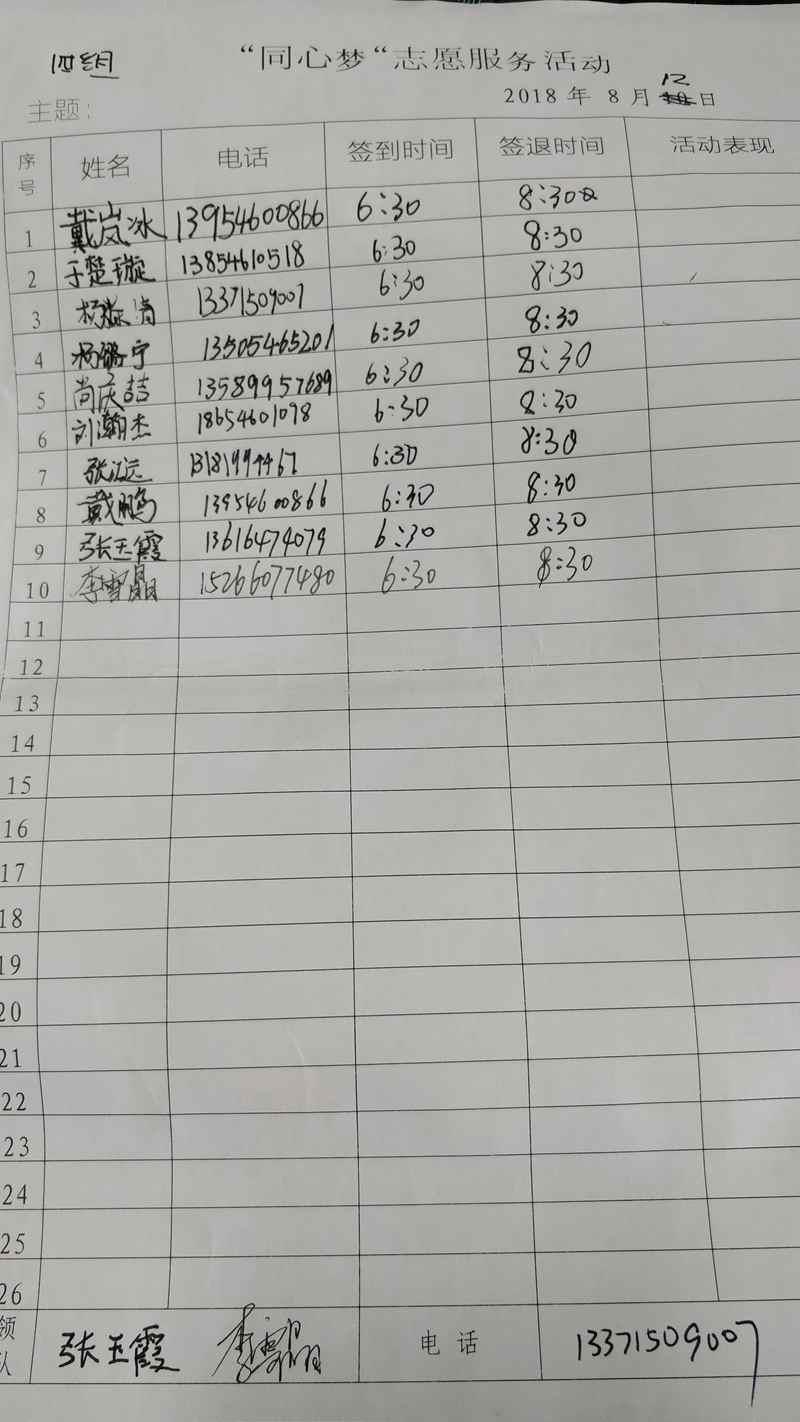 四组 “同心梦“志愿服务活动
主题: 2018 年 8 月 12 日
序号 姓名 电话 签到时间 签退时间 活动表现
1 戴岚冰 13954600866 6:30 8:30
2 于楚璇 13854610518 6:30 8:30
3 杨 13371509007 6:30 8:30
4 杨鹏宁 13505465201 6:30 8:30
5 尚庆喆 13589957689 6:30 8:30
6 刘瀚杰 18654601098 6:30 8:30
7 张江远 13181994467 6:30 8:30
8 戴鹏 13954600866 6:30 8:30
9 张玉霞 13616474079 6:30 8:30
10 李雪晶 15266077480 6:30 8:30
11
12
13
14
15
16
17
18
19
20
21
22
23
24
25
26
领队 张玉霞 李雪晶 电 话 13371509007